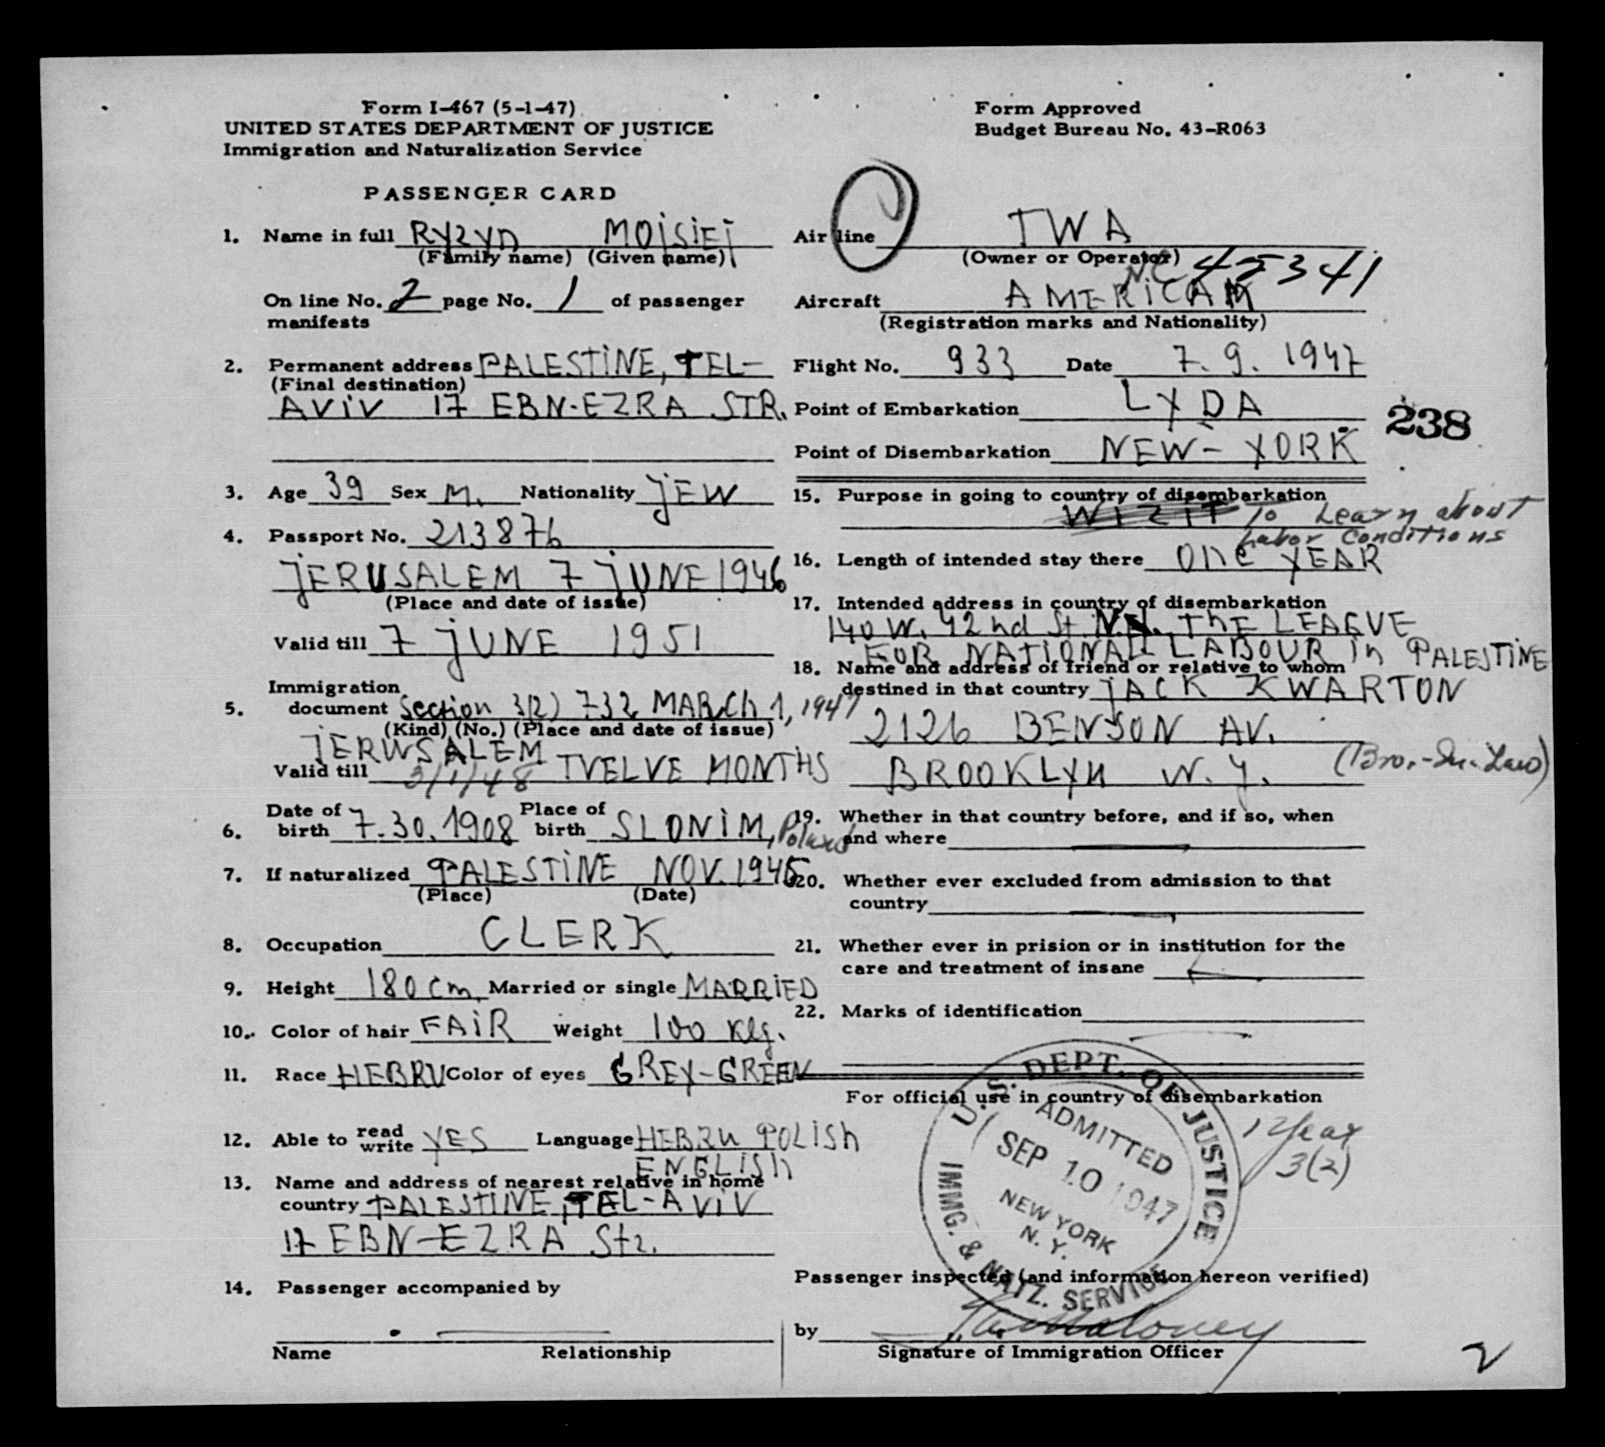 Form I-467 (5-1-47)
UNITED STATES DEPARTMENT OF JUSTICE
Immigration and Naturalization Service
Form Approved
Budget Bureau No. 43-R063
PASSENGER CARD
1. Name in full Ryzyn MOiSiEj
(Family name) (Given name)
On line No. 2 page No. 1 of passenger
manifests
2. Permanent address PALESTiNE, TEL-
(Final destination)
AViV 17 EBN-EZRA STR.
3. Age 39 Sex M. Nationality jEW
4. Passport No. 213876
jERUSALEM 7 jUNE 1946
(Place and date of issue)
Valid till 7 jUNE 1951
5. Immigration
document Section 3(2) 732 MARCh 1, 1947
(Kind) (No.) (Place and date of issue)
jERUSALEM
Valid till 3/1/48 TVELVE MONTHS
6. Date of birth 7.30.1908 Place of birth SLONiM, Poland
7. If naturalized PALESTiNE NOV. 1945
(Place) (Date)
8. Occupation CLERK
9. Height 180 cm. Married or single MARRiED
10. Color of hair FAiR Weight 100 klg.
11. Race HEBRU Color of eyes GREY-GREEN
12. Able to read write YES Language HEBRU POLiSh
ENGLiSh
13. Name and address of nearest relative in home
country PALESTiNE, TEL-AViV
17 EBN-EZRA Str.
14. Passenger accompanied by
Name Relationship
Air line TWA
(Owner or Operator)
N.C. 45341
Aircraft AMERiCAN
(Registration marks and Nationality)
Flight No. 933 Date 7.9.1947
Point of Embarkation LYDA
238
Point of Disembarkation NEW-YORK
15. Purpose in going to country of disembarkation
WiZiT To Learn about
Labor Conditions
16. Length of intended stay there One YEAR
17. Intended address in country of disembarkation
140 W. 42nd St N.Y. ThE LEAGVE
FOR NATiONAL LABOUR in PALESTiNE
18. Name and address of friend or relative to whom
destined in that country jACK KWARTON
2126 BENSON AV.
BROOKLYN N.Y. (Bro.-In-Law)
19. Whether in that country before, and if so, when
and where
20. Whether ever excluded from admission to that
country
21. Whether ever in prision or in institution for the
care and treatment of insane
22. Marks of identification
For official use in country of disembarkation
U.S. DEPT. OF JUSTICE
IMMG. & NATZ. SERVICE
ADMITTED
SEP 10 1947
NEW YORK
N. Y.
1 Year
3(2)
Passenger inspected (and information hereon verified)
by Maloney
Signature of Immigration Officer
2